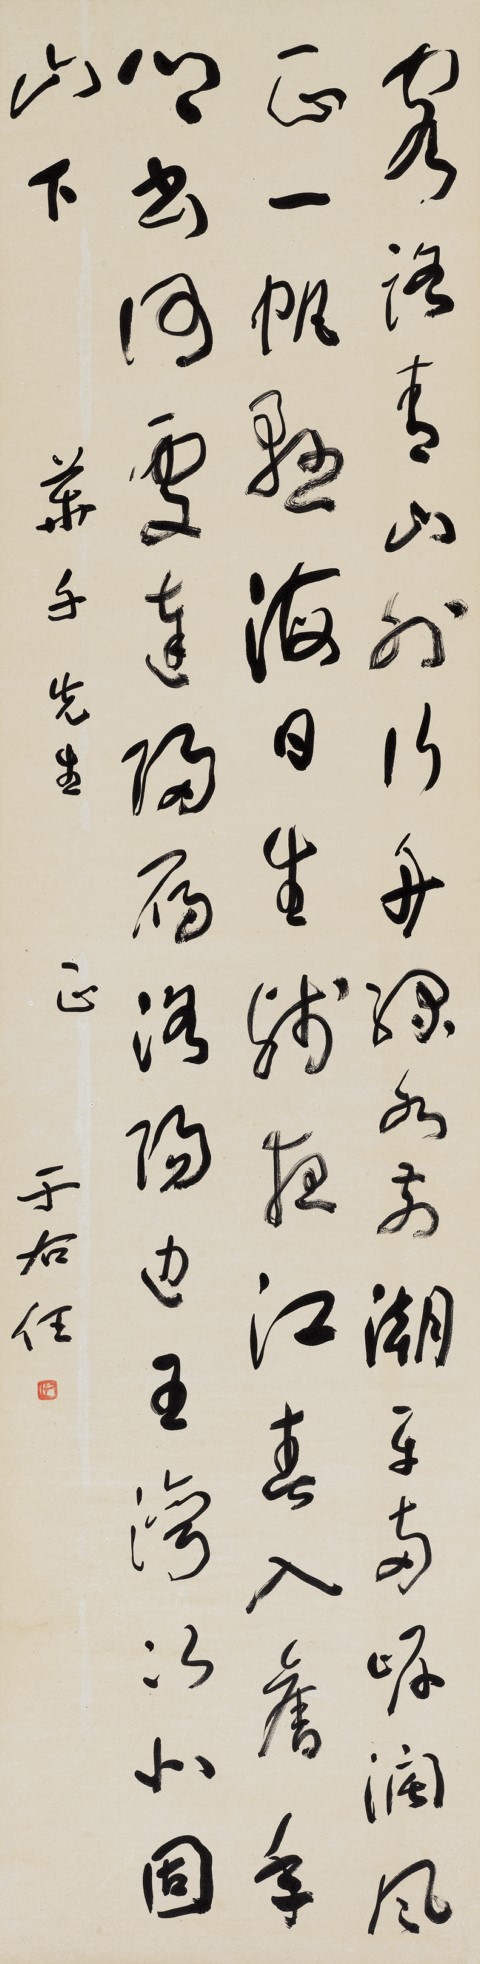 客路青山外行舟綠水前潮平兩岸闊風
正一帆懸海日生殘夜江春入舊年
鄉書何處達歸雁洛陽邊王灣次北固
山下
先生 正
于右任